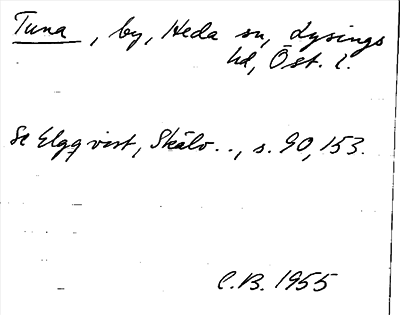 Tuna, by, Heda sn, Lysings
hd, Öst. l.
Se Elgqvist, Skälv.., s. 90, 153.
C.B. 1955